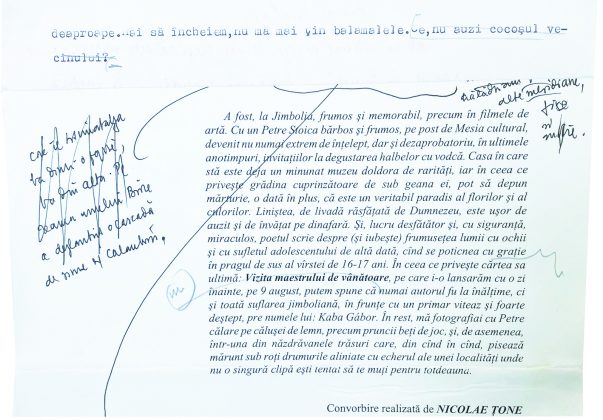 deaproape..ai să închei­em,nu mă mai ţin balamalele.Ce,nu auzi cocoşul ve-
cinului?
alte meridiane,
A fost, la Jimbolia, frumos şi memorabil, precum în filmele de
artă. Cu un Petre Stoica bărbos şi frumos, pe post de Mesia cultural,
devenit nu numai extrem de înţelept, dar şi dezaprobatoriu, în ultimele
anotimpuri, invitaţiilor la degustarea halbelor cu vodcă. Casa în care
stă este deja un minunat muzeu doldora de rarităţi, iar în ceea ce
priveşte grădina cuprinzătoare de sub geana ei, pot să depun
mărturie, o dată în plus, că este un veritabil paradis al florilor şi al
culorilor. Liniştea, de livadă răsfăţată de Dumnezeu, este uşor de
auzit şi de învăţat pe dinafară. Şi, lucru desfătător şi, cu siguranţă,
miraculos, poetul scrie despre (şi iubeşte) frumuseţea lumii cu ochii
şi cu sufletul adolescentului de altă dată, cînd se poticnea cu graţie
în pragul de sus al vîrstei de 16-17 ani. În ceea ce priveşte cărtea sa
ultimă: Vizita maestrului de vânătoare, pe care i-o lansarăm cu o zi
înainte, pe 9 august, putem spune că numai autorul fu la înălţime, ci
şi toată suflarea jimboliană, în frunte cu un primar viteaz şi foarte
deştept, pre numele lui: Kaba Gábor. În rest, mă fotografiai cu Petre
călare pe căluşei de lemn, precum pruncii beţi de joc, şi, de asemenea,
într-una din năzdrăvanele trăsuri care, din cînd în cînd, pisează
mărunt sub roţi drumurile aliniate cu echerul ale unei localităţi unde
nu o singură clipă eşti tentat să te muţi pentru totdeauna.
Convorbire realizată de NICOLAE ŢONE